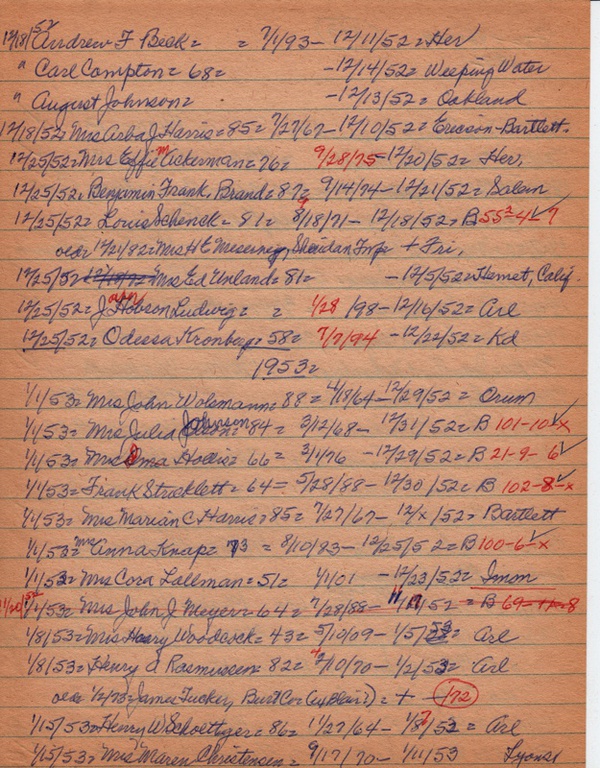 12/18/52 Andrew F Beck = = 7/1/93 - 12/11/52 = Her
" Carl Compton = 68 = - 12/14/52 = Weeping Water
" August Johnson = - 12/13/52 = Oakland
12/18/52 = Mrs Arba J Harris = 85 = 7/27/67 - 12/10/52 = Ericson-Bartlett.
12/25/52 = Mrs Effie M Ackerman = 76 = 9/28/75 - 12/20/52 = Her,
12/25/52 = Benjamin Frank, Brand = 87 = 9/14/74 - 12/21/52 = Salem
12/25/52 = Louis Schenck = 81 = 8/18/71 - 12/18/52 = B 55 2-4-7
12/21/82 = Mrs H E Meserney, Sheridan + Fri,
12/25/52 Mrs Ed Unland = 81 = - 12/5/52 = Hemet, Calif.
12/25/52 = J Hobson Ludwig = = 1/28/98 - 12/16/52 = Arl
12/25/52 = Odessa Kronberg = 58 = 7/7/94 - 12/22/52 = Kd
1953 =
1/1/53 = Mrs John Wolsmann = 88 = 4/18/64 - 12/29/52 = Orum
1/1/53 = Mrs Julia Johnson 84 = 3/12/68 - 12/31/52 = B 101-10-x
1/1/53 = Mrs Hollis = 66 = 3/1/76 - 12/29/52 = B 21-9-6
1/1/53 = Frank Stricklett = 64 = 5/28/88 - 12/30/52 = B 102-8-x
1/1/53 = Mrs Marian C Harris = 85 = 7/27/67 - 12/x/52 = Bartlett
1/1/53 = Mrs Anna Knap = 73 = 8/10/83 - 12/25/52 = B 100-6-x
1/1/53 = Mrs Cora Lallman = 51 = 1/1/01 - 12/23/52 = Imon
11/20/52 1/1/53 = Mrs John J Meyer = 64 = 7/28/88 - 11/19/52 = B 69-11-8
1/8/53 = Mrs Harry Woodcock = 43 = 5/10/09 - 1/5/53 = Arl
1/8/53 = Henry A Rasmussen = 82 = 4/10/70 - 1/2/53 = Arl
1/2/73 = James Tucker, Burt Co (Blair) = + 172
1/15/53 = Henry W Schoettger = 86 = 1/27/64 - 1/8/53 = Arl
1/15/53 = Mrs Maren Christensen = 9/17/70 - 1/11/53 Lyons